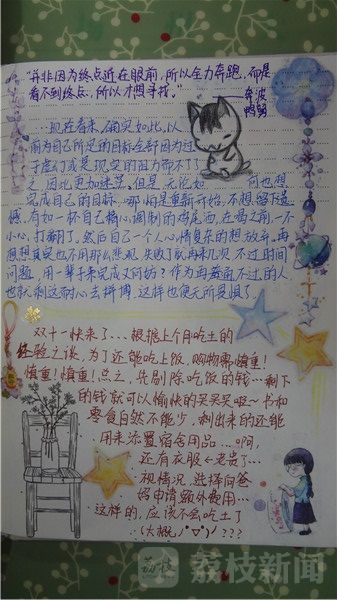 “并非因为终点近在眼前，所以全力奔跑，而是
看不到终点，所以才想寻找。”
奔波
…现在看来，确实如此。以
前为自己所定的目标全部因为过
于虚幻或是现实的阻力而不了了
之，因此更加迷茫。但是，无论如
何也想
完成自己的目标，哪怕是重新开始，不想留下遗
憾。有如一杯自己精心调制的鸡尾酒，在喝之前，一不
小心，打翻了。然后自己一个人心情复杂的想放弃。再
想想其实也不用那么悲观，失败了就再来几次，不过时间
问题，用一辈子来完成又何妨？作为再普通不过的人
也就剩这耐心去拼搏，这样也便无所畏惧了。
双十一快来了…根据上个月吃土的
经验之谈，为了还能吃上饭，购物需慎重！
慎重！慎重！总之，先剔除吃饭的钱…剩下
的钱就可以愉快的买买买啦~书和
零食自然不能少，剩出来的还能
用来添置宿舍用品…啊，
还有衣服←老贵了…
视情况，选择向爸
妈申请额外费用…
这样的，应该不会吃土了
（大概ノ▽）ノ？？？
荔枝
荔枝新闻